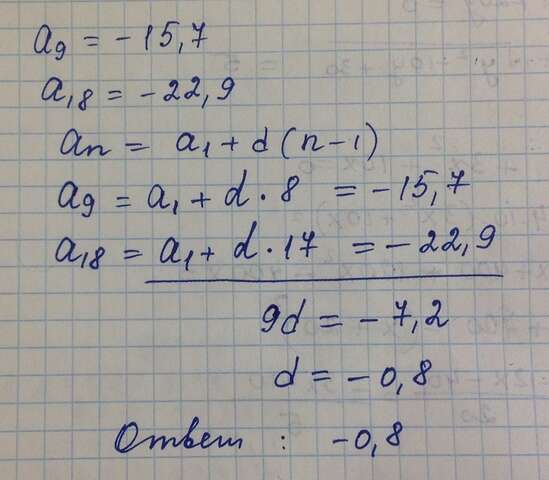 a₉ = -15,7
a₁₈ = -22,9
aₙ = a₁ + d(n-1)
a₉ = a₁ + d · 8 = -15,7
a₁₈ = a₁ + d · 17 = -22,9
9d = -7,2
d = -0,8
Ответ : -0,8